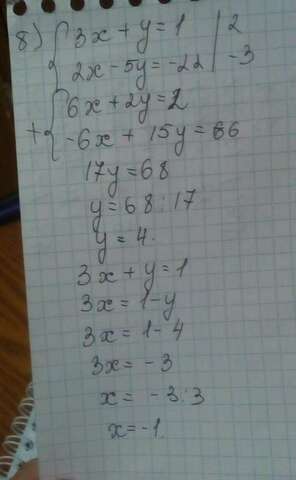 8) { 3x + y = 1 | 2
2x - 5y = -22 | -3
+ { 6x + 2y = 2
-6x + 15y = 66
17y = 68
y = 68 : 17
y = 4.
3x + y = 1
3x = 1 - y
3x = 1 - 4
3x = -3
x = -3 : 3
x = -1